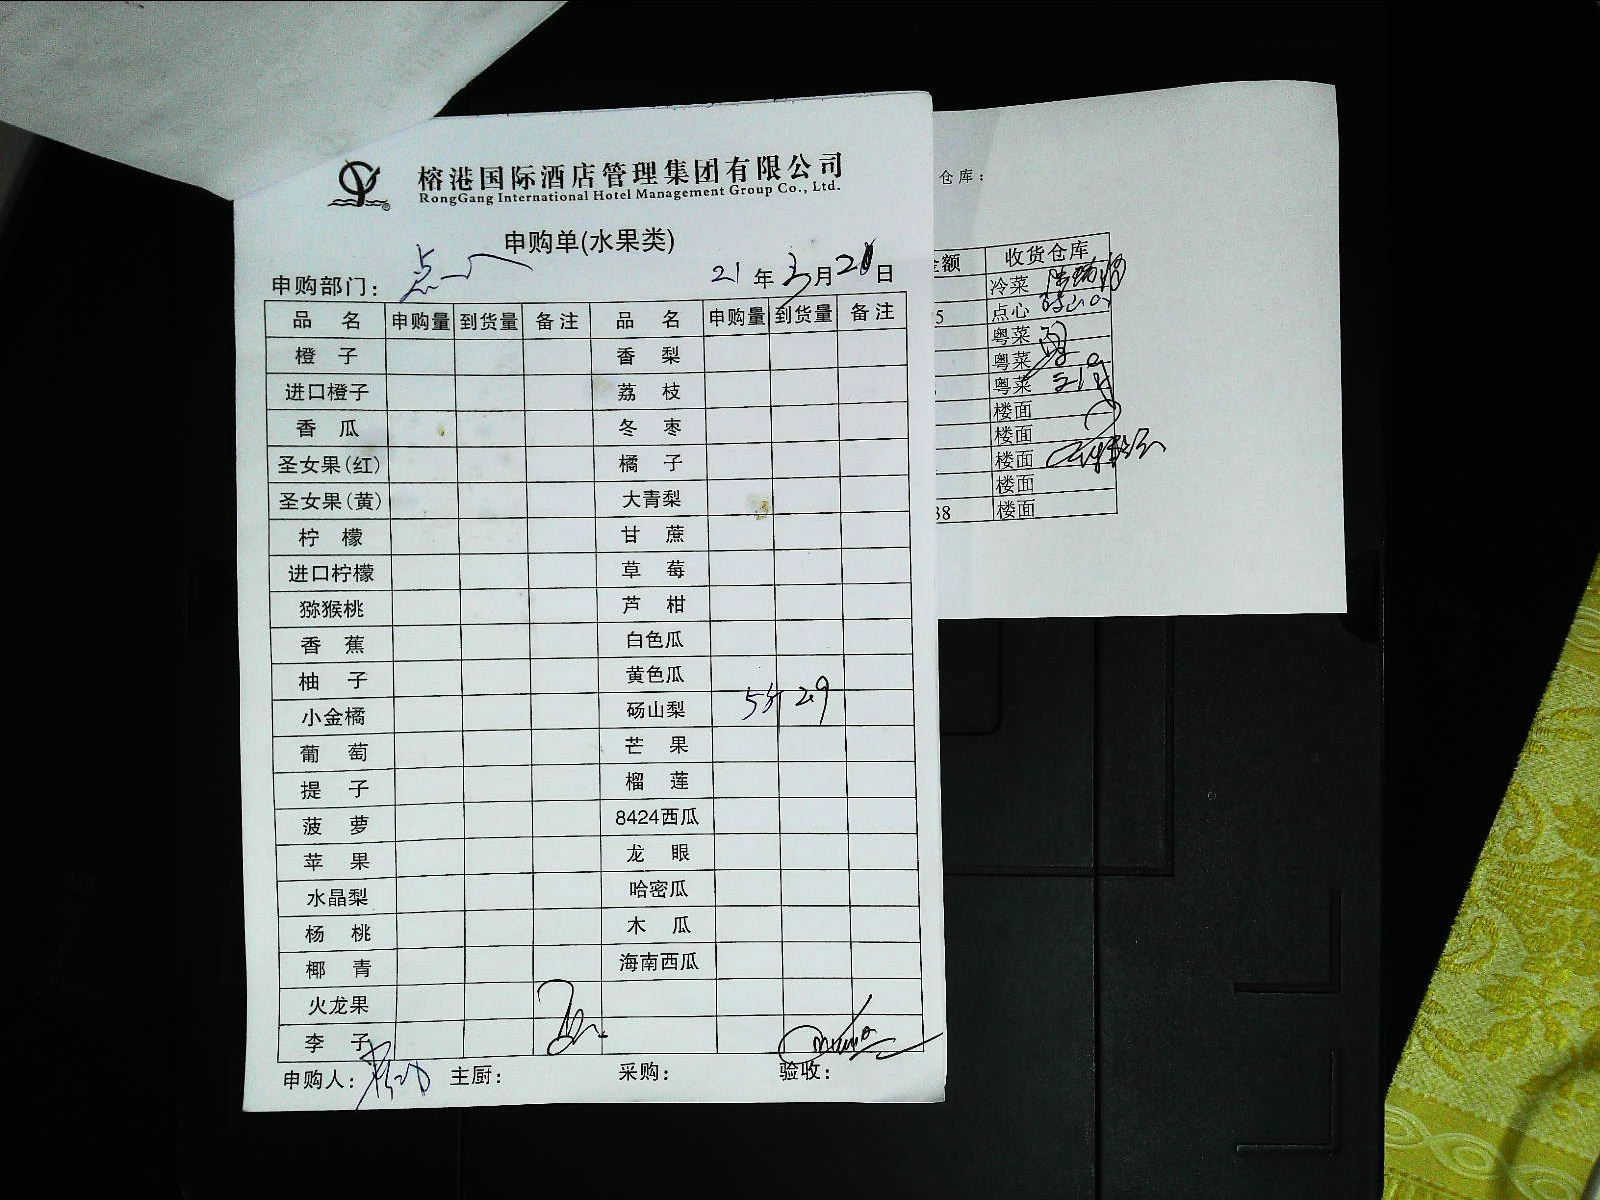 榕港国际酒店管理集团有限公司
RongGang International Hotel Management Group Co., Ltd.
申购单(水果类)
申购部门: 点 21年3月21日
品 名 申购量 到货量 备注 品 名 申购量 到货量 备注
橙 子 香 梨
进口橙子 荔 枝
香 瓜 冬 枣
圣女果(红) 橘 子
圣女果(黄) 大青梨
柠 檬 甘 蔗
进口柠檬 草 莓
猕猴桃 芦 柑
香 蕉 白色瓜
柚 子 黄色瓜
小金橘 砀山梨 5斤 29
葡 萄 芒 果
提 子 榴 莲
菠 萝 8424西瓜
苹 果 龙 眼
水晶梨 哈密瓜
杨 桃 木 瓜
椰 青 海南西瓜
火龙果
李 子
申购人: 主厨: 采购: 验收:
仓库:
金额 收货仓库
冷菜
5 点心
粤菜
粤菜
粤菜
楼面
楼面
楼面
楼面
38 楼面